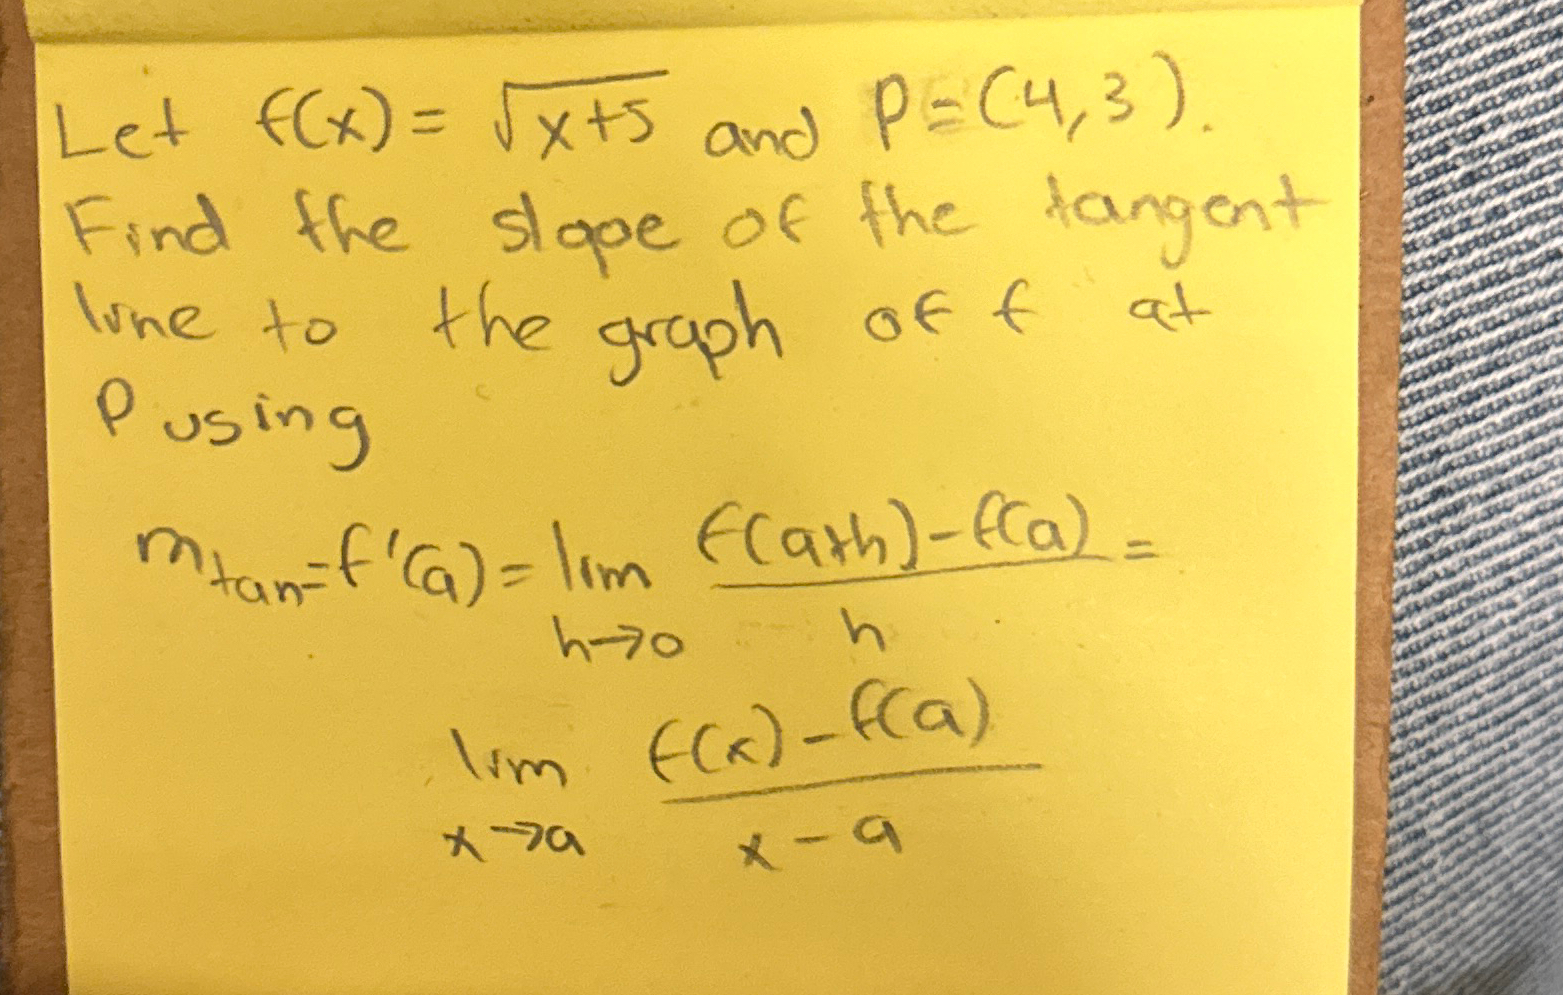 Let f(x) = √x+5 and P=(4,3).
Find the slope of the tangent
line to the graph of f at
P using
m_tan = f'(a) = lim h→0 f(a+h)-f(a) / h =
lim x→a f(x)-f(a) / x-a